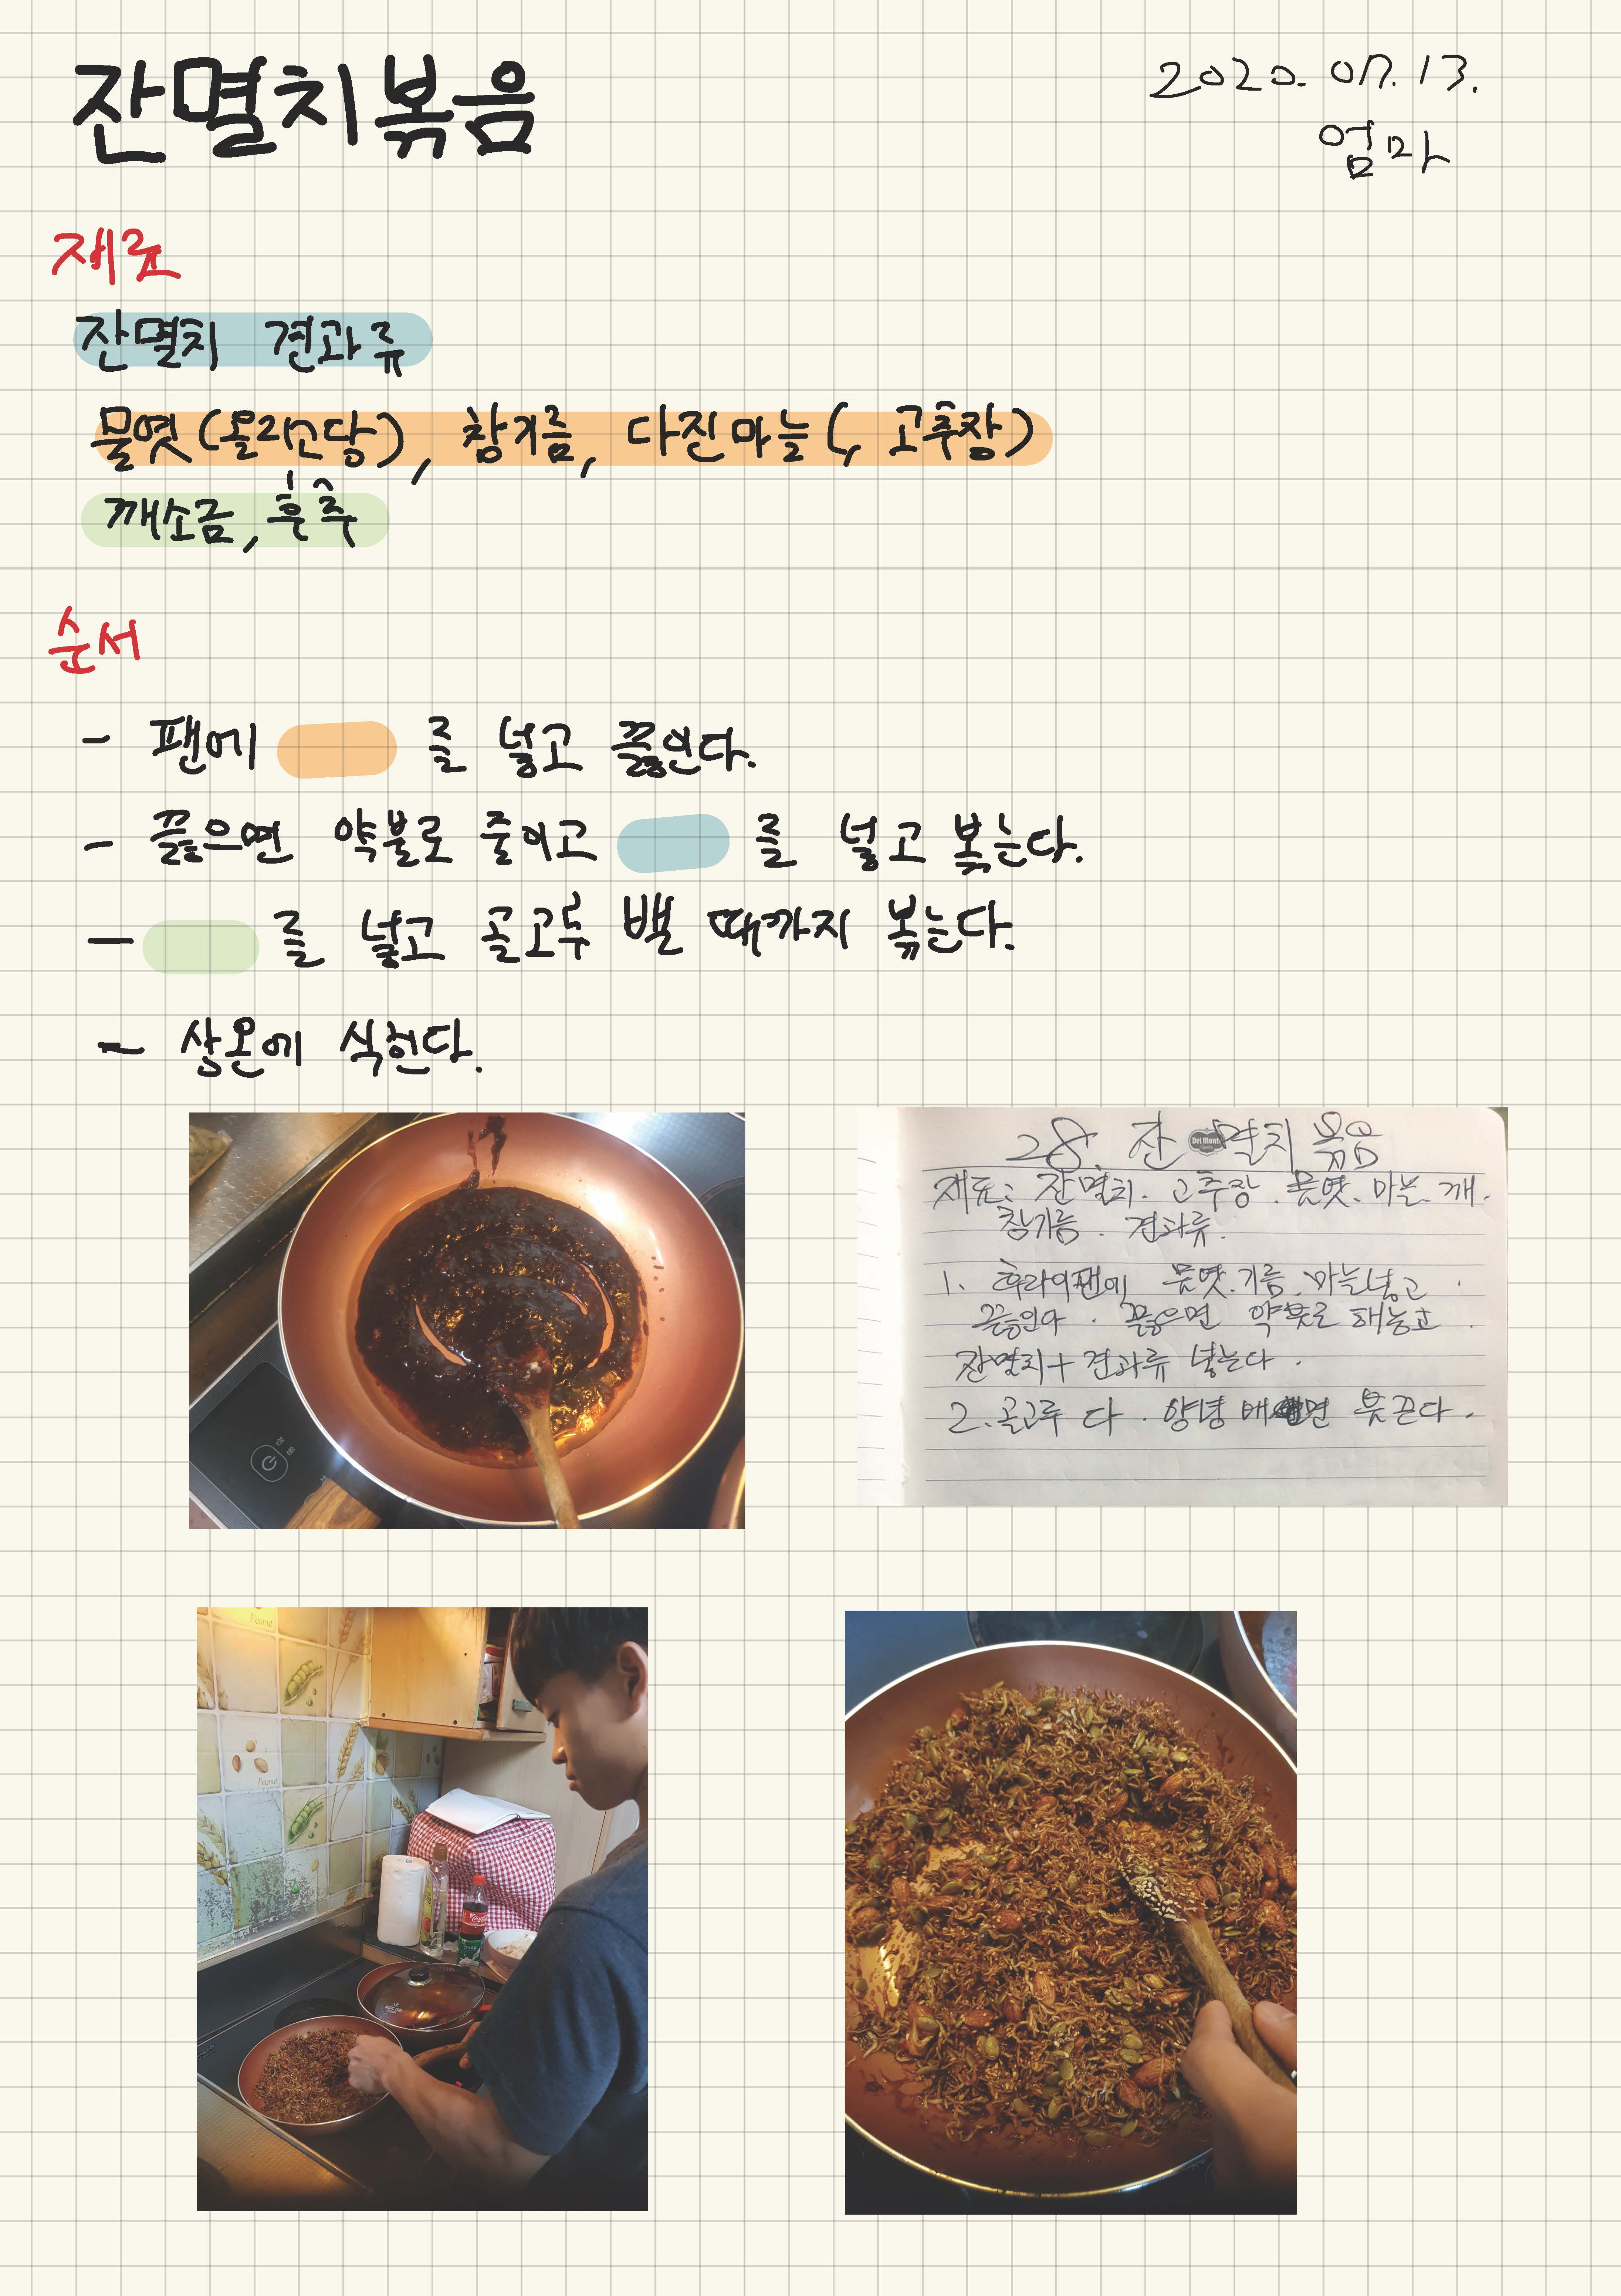 잔멸치볶음
2020. 07. 13.
엄마
재료
잔멸치 견과류
물엿(올리고당), 참기름, 다진마늘(, 고추장)
깨소금, 후추
순서
- 팬에 를 넣고 끓인다.
- 끓으면 약불로 줄이고 를 넣고 볶는다.
- 를 넣고 골고루 밸 때까지 볶는다.
- 상온에 식힌다.
28. 잔멸치 볶음
Del Monte
재료: 잔멸치. 고추장. 물엿. 마늘. 깨.
참기름. 견과류.
1. 후라이팬에 물엿. 기름. 마늘넣고
끓인다. 끓으면 약불로 해놓고
잔멸치+견과류 넣는다.
2. 골고루 다. 양념 배면 불끈다.